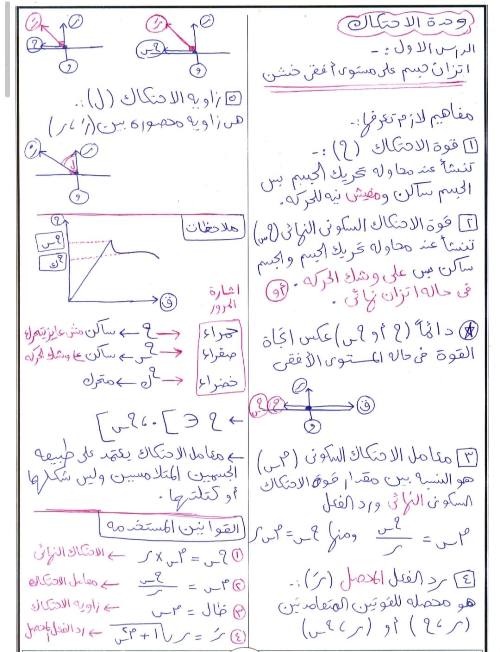 وحدة الاحتكاك
الدرس الاول :-
اتزان جسم على مستوى أفقى خشن
مفاهيم لازم تعرفها :-
١ قوة الاحتكاك (ح) :-
تنشأ عند محاوله تحريك الجسم بس
الجسم ساكن ومفيش نيه للحركه.
٢ قوة الاحتكاك السكونى النهائى (ح س)
تنشأ عند محاوله تحريك الجسم والجسم
ساكن بس على وشك الحركه . أو
فى حاله اتزان نهائى .
دائمًا (ح أو ح س) عكس اتجاة
القوة فى حاله المستوى الأفقى
ر
ح س ح ق
و
٣ معامل الاحتكاك السكونى (م س)
هو النسبه بين مقدار قوة الاحتكاك
السكونى النهائى ورد الفعل
م س = ح س / ر ومنها ح س = م س ر
٤ رد الفعل المحصل (رَ) :-
هو محصله للقوتين المتعامدتين
(ر ، ح) أو (ر ، ح س)
رَ ر
ح
و
رَ ر
ح س
و
٥ زاويه الاحتكاك (ل) :-
هى زاويه محصوره بين (رَ ، ر)
رَ ر
ل
و
ملاحظات
ح
ح س
ح ك
ق
اشارة
المرور
حمراء ← ح ← ساكن مش عايز يتحرك
صفراء ← ح س ← ساكن على وشك الحركه
خضراء ← ح ك ← متحرك
← ح ∈ ]٠ ، ح س]
← معامل الاحتكاك يعتمد على طبيعه
الجسمين المتلامسين وليس شكلها
أو كتلتها .
القوانين المستخدمه
١ ح س = م س × ر ← الاحتكاك النهائى
٢ م س = ح س / ر ← معامل الاحتكاك
٣ ظال = م س ← زاويه الاحتكاك
٤ رَ = ر √(١ + م س٢) ← رد الفعل المحصل